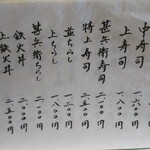 中寿司 一、六〇〇円
上寿司 一、八〇〇円
甚兵衛寿司 二、〇〇〇円
特上寿司 二、五〇〇円
並ちらし 一、二〇〇円
上ちらし 一、八〇〇円
甚兵衛ちらし 二、〇〇〇円
鉄火丼 二、〇〇〇円
上鉄火丼 二、五〇〇円